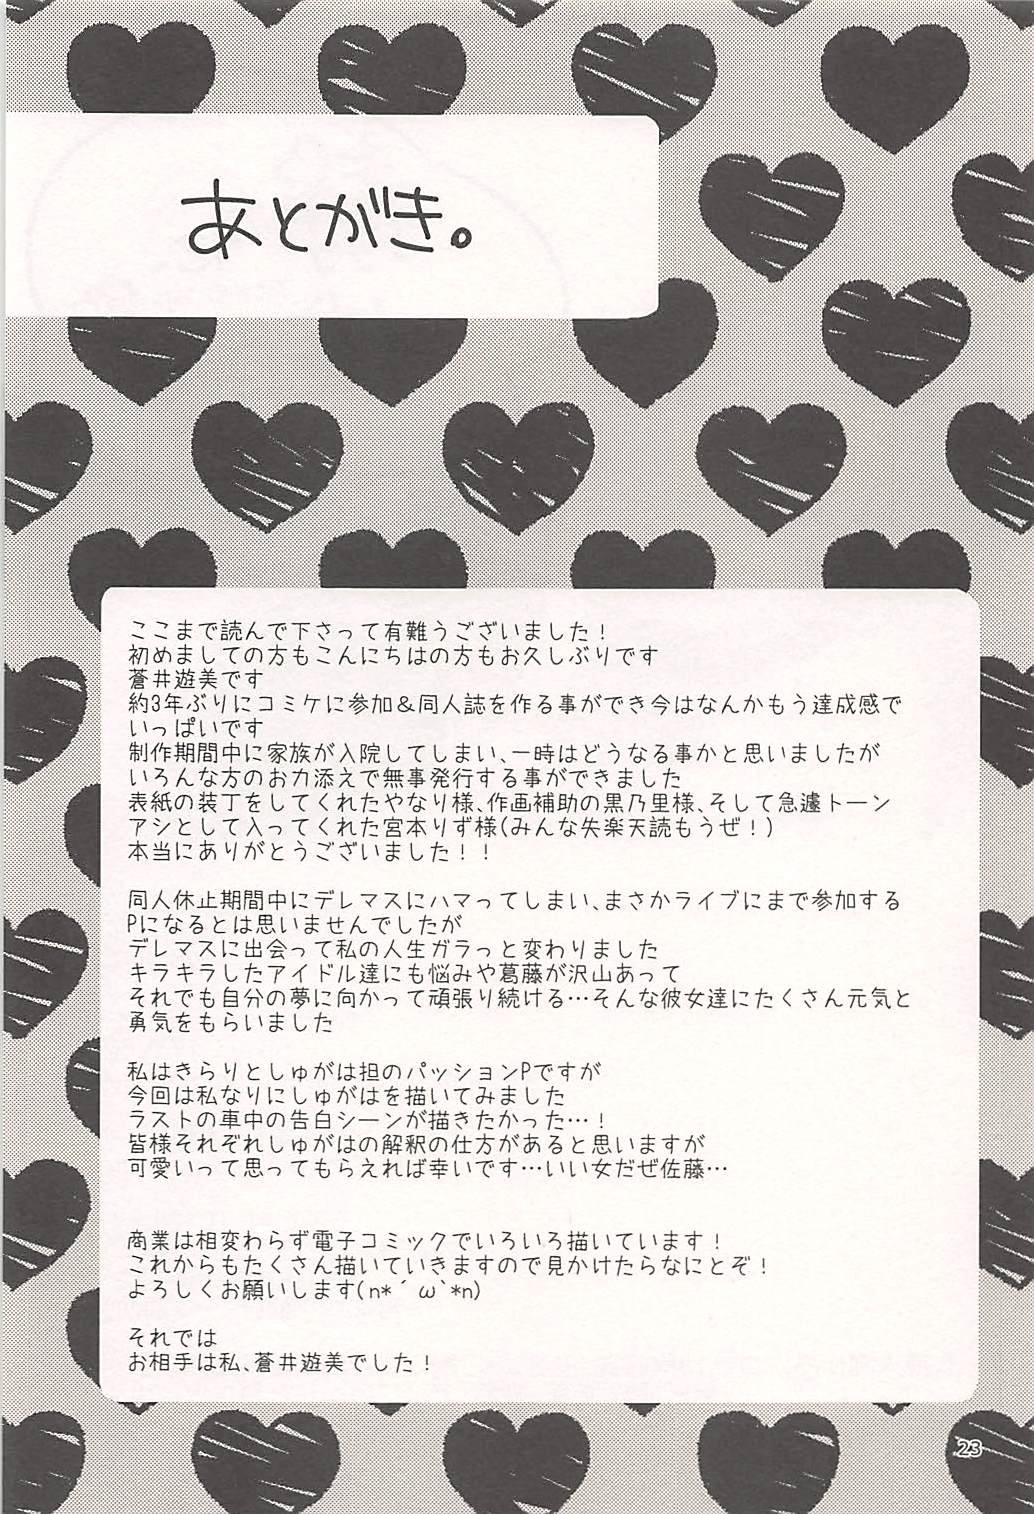 あとがき。
ここまで読んで下さって有難うございました！
初めましての方もこんにちはの方もお久しぶりです
蒼井遊美です
約3年ぶりにコミケに参加＆同人誌を作る事ができ今はなんかもう達成感で
いっぱいです
制作期間中に家族が入院してしまい、一時はどうなる事かと思いましたが
いろんな方のお力添えで無事発行する事ができました
表紙の装丁をしてくれたやなり様、作画補助の黒乃里様、そして急遽トーン
アシとして入ってくれた宮本りず様（みんな失楽天読もうぜ！）
本当にありがとうございました！！
同人休止期間中にデレマスにハマってしまい、まさかライブにまで参加する
Pになるとは思いませんでしたが
デレマスに出会って私の人生ガラっと変わりました
キラキラしたアイドル達にも悩みや葛藤が沢山あって
それでも自分の夢に向かって頑張り続ける…そんな彼女達にたくさん元気と
勇気をもらいました
私はきらりとしゅがは担のパッションPですが
今回は私なりにしゅがはを描いてみました
ラストの車中の告白シーンが描きたかった…！
皆様それぞれしゅがはの解釈の仕方があると思いますが
可愛いって思ってもらえれば幸いです…いい女だぜ佐藤…
商業は相変わらず電子コミックでいろいろ描いています！
これからもたくさん描いていきますので見かけたらなにとぞ！
よろしくお願いします(n*´ω`*n)
それでは
お相手は私、蒼井遊美でした！
23